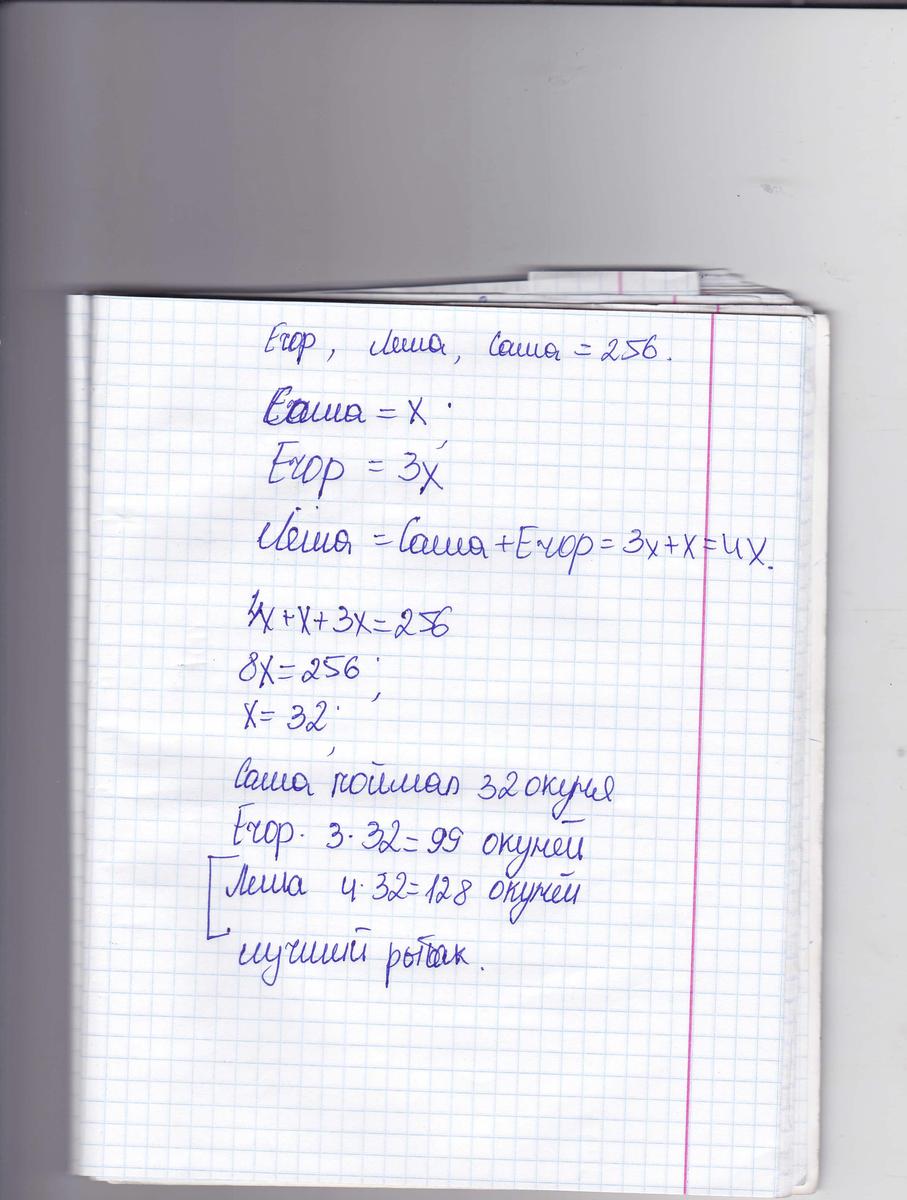 Егор, Леша, Саша = 256.
Саша = х;
Егор = 3х
Лёша = Саша + Егор = 3х+х=4х.
4х+х+3х=256
8х=256;
х= 32;
Саша поймал 32 окуня
Егор. 3·32=99 окуней
Леша 4·32=128 окуней
лучший рыбак.